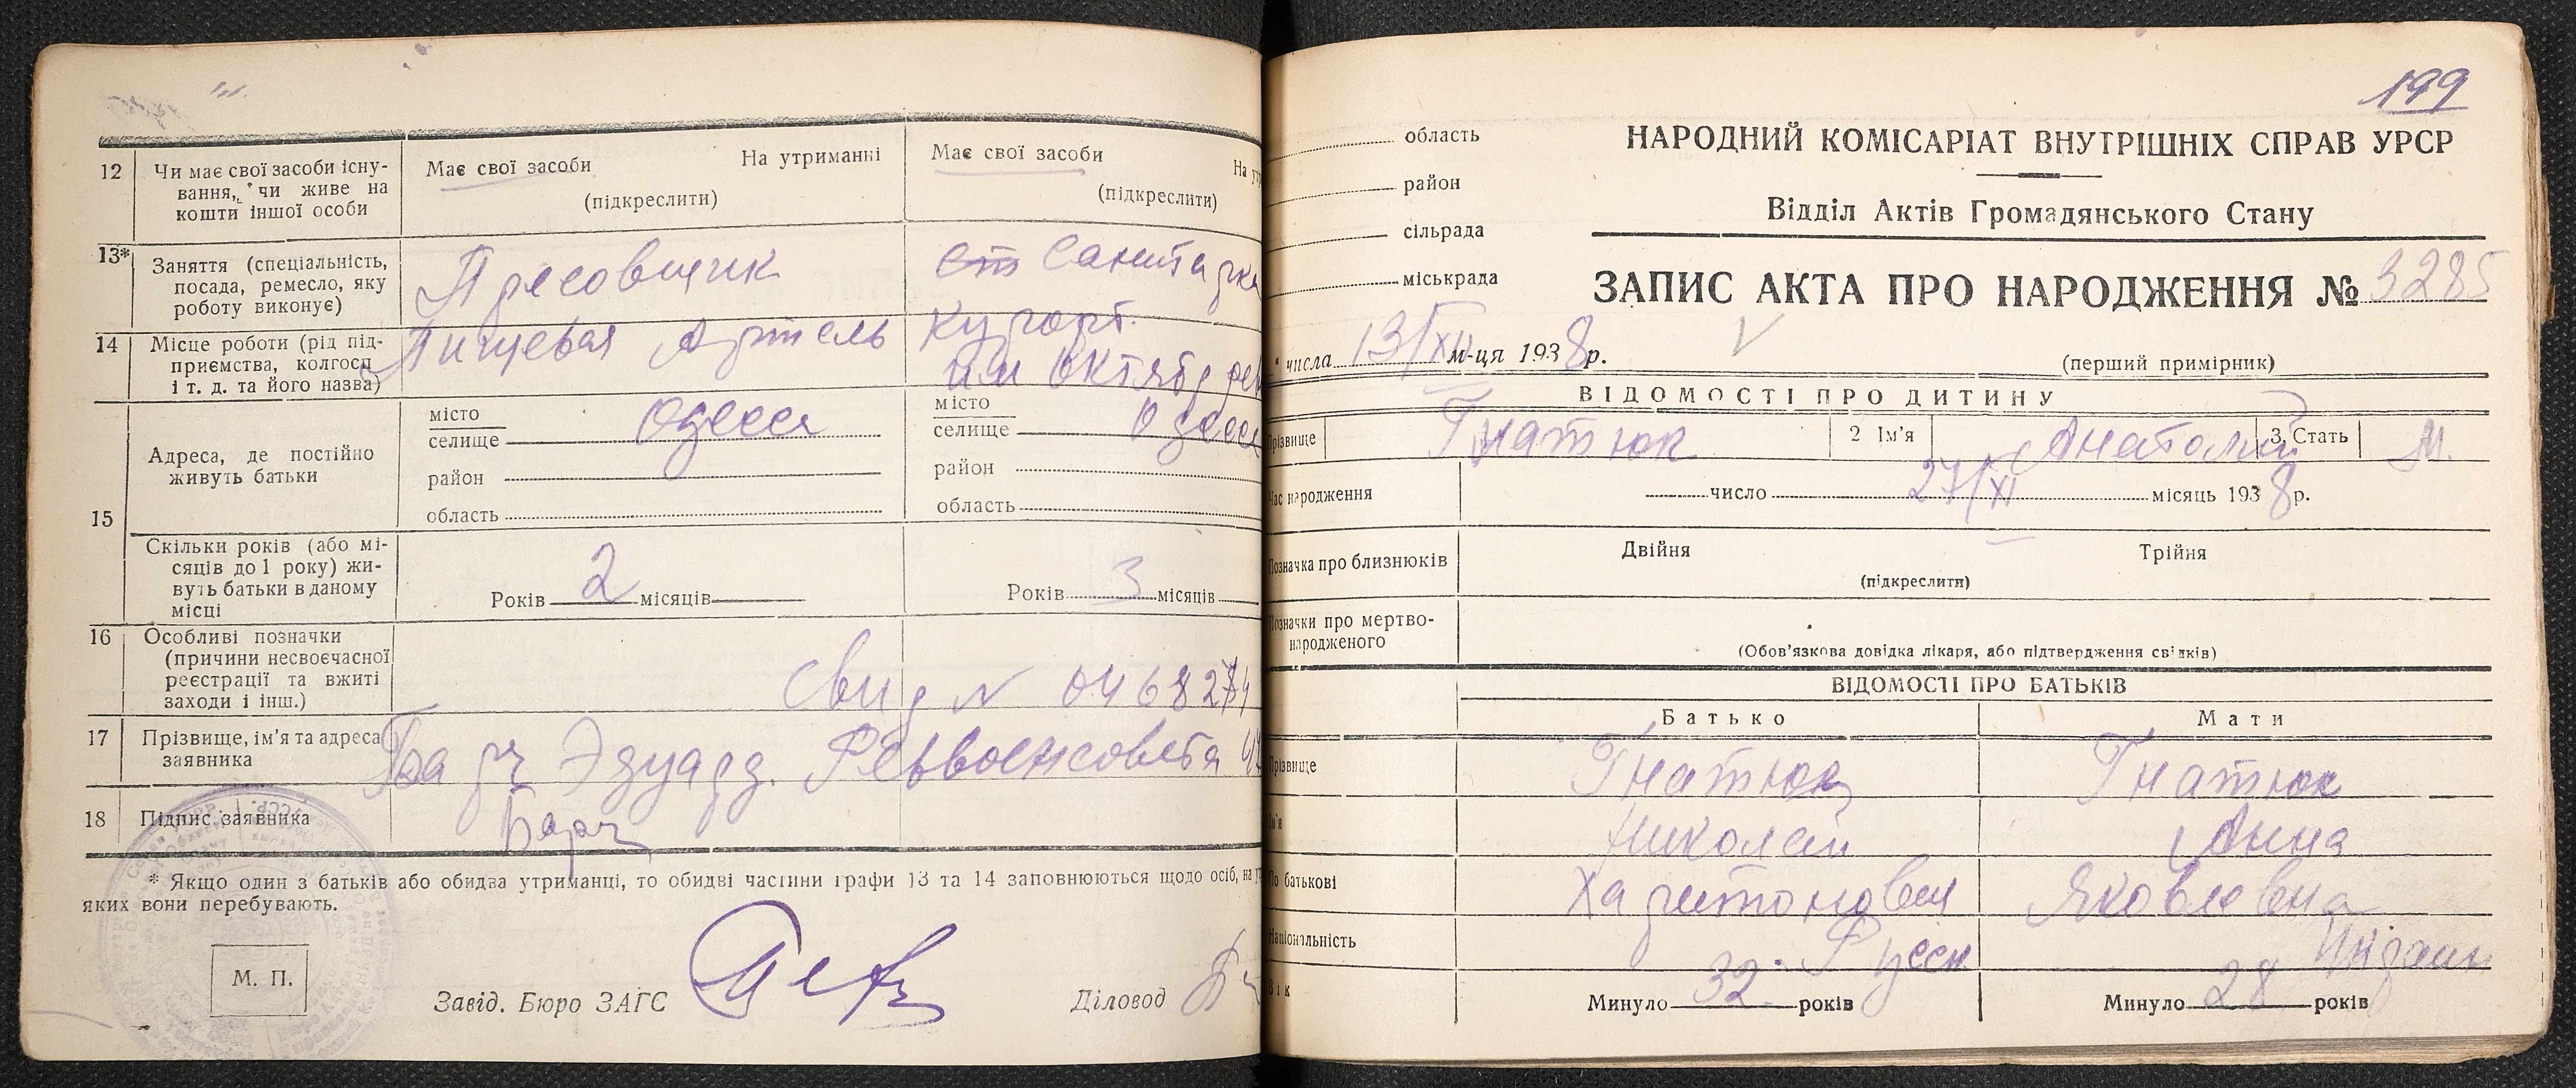 12
Чи має свої засоби існу-
вання, чи живе на
кошти іншої особи
Має свої засоби
На утриманні
(підкреслити)
Має свої засоби
На
(підкреслити)
13*
Заняття (спеціальність,
посада, ремесло, яку
роботу виконує)
Пресовщик
ст Санитарка
14
Місце роботи (рід під-
приємства, колгосп
і т. д. та його назва)
Пищевая Артель
Курорт.
им Октябр рев
15
Адреса, де постійно
живуть батьки
місто
селище Одесса
район
область
місто
селище Одесса
район
область
Скільки років (або мі-
сяців до 1 року) жи-
вуть батьки в даному
місці
Років 2 місяців
Років 3 місяців
16
Особливі позначки
(причини несвоєчасної
реєстрації та вжиті
заходи і інш.)
Свид N 046827
17
Прізвище, ім'я та адреса
заявника
Эдуард. Реввоенсовета
18
Підпис заявника
* Якщо один з батьків або обидва утриманці, то обидві частини графи 13 та 14 заповнюються щодо осіб, на
яких вони перебувають.
М. П.
Завід. Бюро ЗАГС
Діловод
199
область
район
сільрада
міськрада
НАРОДНИЙ КОМІСАРІАТ ВНУТРІШНІХ СПРАВ УРСР
Відділ Актів Громадянського Стану
ЗАПИС АКТА ПРО НАРОДЖЕННЯ № 3285
числа 13/XII м-ця 1938 р.
(перший примірник)
ВІДОМОСТІ ПРО ДИТИНУ
Прізвище Гнатюк 2 Ім'я Анатолий 3. Стать М.
Час народження
число 27/XI місяць 1938 р.
Позначка про близнюків
Двійня
Трійня
(підкреслити)
Позначки про мертво-
народженого
(Обов'язкова довідка лікаря, або підтвердження свідків)
ВІДОМОСТІ ПРО БАТЬКІВ
Батько
Мати
Прізвище Гнатюк Гнатюк
Ім'я Николай Анна
По батькові Харитонович Яковлевна
Національність Русск. Украин
Вік
Минуло 32 років
Минуло 28 років